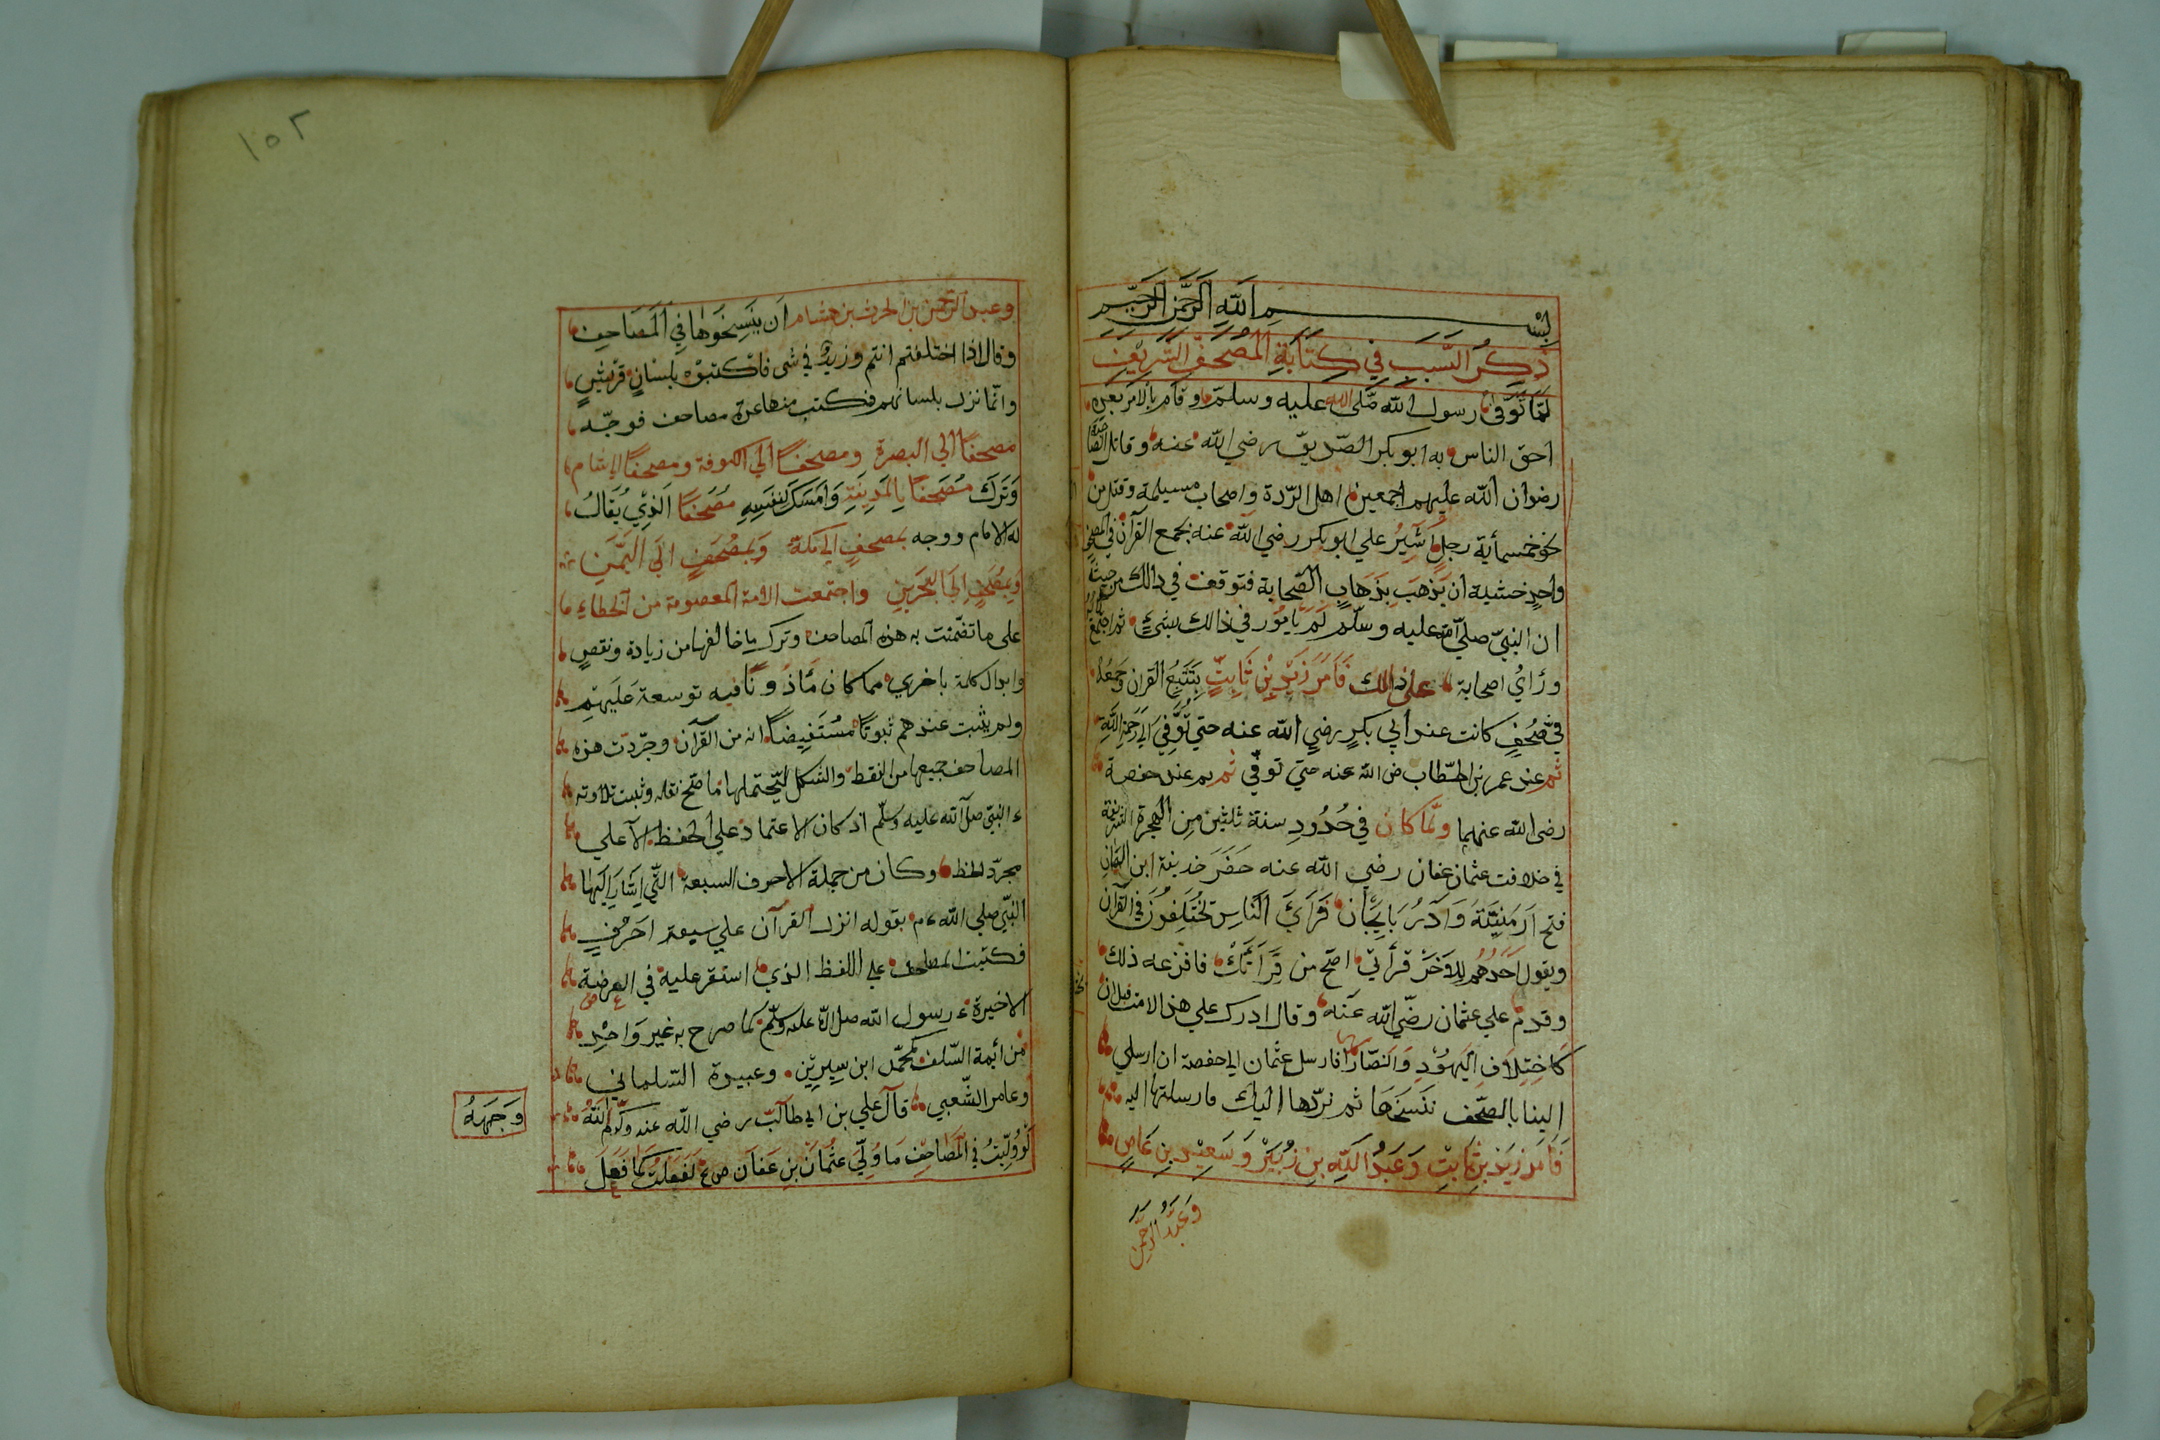 بِسْمِ اللّٰهِ الرَّحْمٰنِ الرَّحِيْمِ
ذِكْرُ السَّبَبِ فِي كِتَابَةِ الْمُصْحَفِ الشَّرِيْفِ
لمّا تُوفّي رسول اللّه صَلّى اللّه عليه وسلّم وقام بالامر بعده
احق الناس به ابو بكر الصّديق رضي اللّه عنه وقاتل الصحابة
رضوان اللّه عليهم اجمعين اهل الرّدة واصحاب مسيلمة وقتل من
نحو خمسمأية رجل اُشيرُ علي ابو بكر رضي اللّه عنه بجمع القرآن في المصحف
واحدٍ خشية ان يَذهَبَ بذهاب الصّحابة فتوقف في ذالك من حيث
ان النبيّ صليّ اللّه عليه وسلّم لَمْ يامُور في ذالك بشيءٍ ثم اجتمع
ورُايُ اصحابة على ذالك فَاَمَرَ زَيْدِ بْنِ ثَابِتٍ بِتَتَبُّعِ القران وَجَمْعه
في صُحُفٍ كانت عند ابي بكرٍ رضي اللّه عنه حتي تُوفّيَ الي رَحمة اللّه
ثم عند عمر بن الخطّاب رض اللّه عنه حتي توفّي ثم عند حفصة
رضى اللّه عنهما ولمّا كان في حُدُودِ سنة ثلثين مِن الهجرة الشريفة
في خلافت عثمان عفان رضي اللّه عنه حَضَرَ حذيفة ابن اليمان
فتح اَرْمَنِيّنَةُ وَاَدَرُ بَايِجَّان فَرَايَ النّاسِ تختَلِفُونَ في القرآن
ويقول اَحَدُهُم لِلآخَرْ قرأتي اصح من قِرَاتَكْ فافزعه ذلك
وقدم علي عثمان رضّي اللّه عَنه وقال ادرك علي هذا الامت قبل ان
كَاخْتِلَافِ اليَهُوْدِ وَالنّصَارَا فارسل عثمان الي حفصة ان ارسلي
الينا بالصّحف ننسَخَهَا ثم نردّها اليك فارسلتها اليه
فَاَمَرَ زَيْدِ بْنِ ثَابِتْ وَعَبْدُ اللّهِ بنِ زُبَيْرْ وَسَعِيْدِ بن عَاصٍ
وَعَبْدُ الرَّحْمن
١٥٢
وعبد الرحمن بن الحرث بن هشام اَن يَنْسِخُوهَا فِي المَصَاحِفِ
وقال اذا اختلفتم انتم وزيدٌ في شى فاكتبوْه بلسَانٍ قريشٍ
وانّما نزل بلسانهم فكتب منها عدة مصاحف فوجّه
مصحفًا الي البصرة ومصحفًا الي الكوفة ومصحفًا لا لشام
وَتَرك مُصْحَفًا بِالمَدِيْنَةِ وَاَمْسَكَ لنفسِهِ مُصْحَفًا الَّذِيْ يُقالُ
له الامام ووجه بمُصحفٍ الي مكة وَبِمُصْحَفٍ الَي اليَمَنِ
وَبِمُصْحَفٍ الَي البَحْرَيْنِ واجتمعت الامة المعصومة من الخطاءِ
على ما تضّمنت به هذه المصاحف وترك ما خالفها من زيادة ونقصٍ
وابدال كلمة باخري مما كان مَّاذُوْنًا فيه توسعة عَلَيهِمِ
ولم يثبت عندهم ثبوتًا مُسْتَفِيْضًا انه من القرآن وجرّدت هذه
المصاحف جميعها من النقط والشكل ليّحتملها ما صّح نقله وثبت تلاوته
ء النبيّ صلّ اللّه عليه وسلّم اذ كان الاعتماد علي الحفظ لا علي
مجرّد الخط وكان من جملة الاحرف السبعة التّي اشارَ اِلَيهَا
النّبيّ صلي اللّه ءم بقوله انزل القرآن علي سبعة احْرُفٍ
فكتبت المصاحف علي اللفظ الذي استقر عليه في العرضة
الاخيرة ء رسول اللّه صل اللّه عليه وسلّم كما صرح به غير وَاحِدٍ
من ائيمة السّلف كمحمّد ابن سِيرِيْن وعبيدة السّلماني
وعامر الشّعبي قالَ علي بن ابي طالب رضي اللّه عنه وكرّم اللّهُ
لَوْ وُلِّيتُ في المصَاحِف مَا وُلّي عثمان بن عفان رض لَفَعَلتُ كَمَا فَعَلَ
وَجَهَهُ